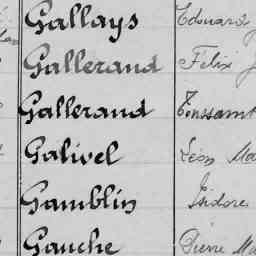 Gallays Edouard
Gallerand Félix
Gallerand Toussaint
Galivel Léon Ma
Gamblin Isidore
Gauche Pierre Ma